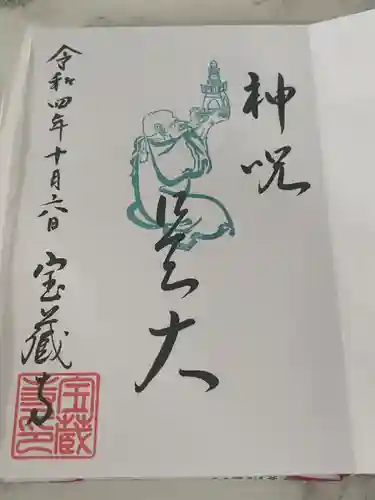 神呪
是大
令和四年十月六日
宝蔵寺
宝蔵
寺印